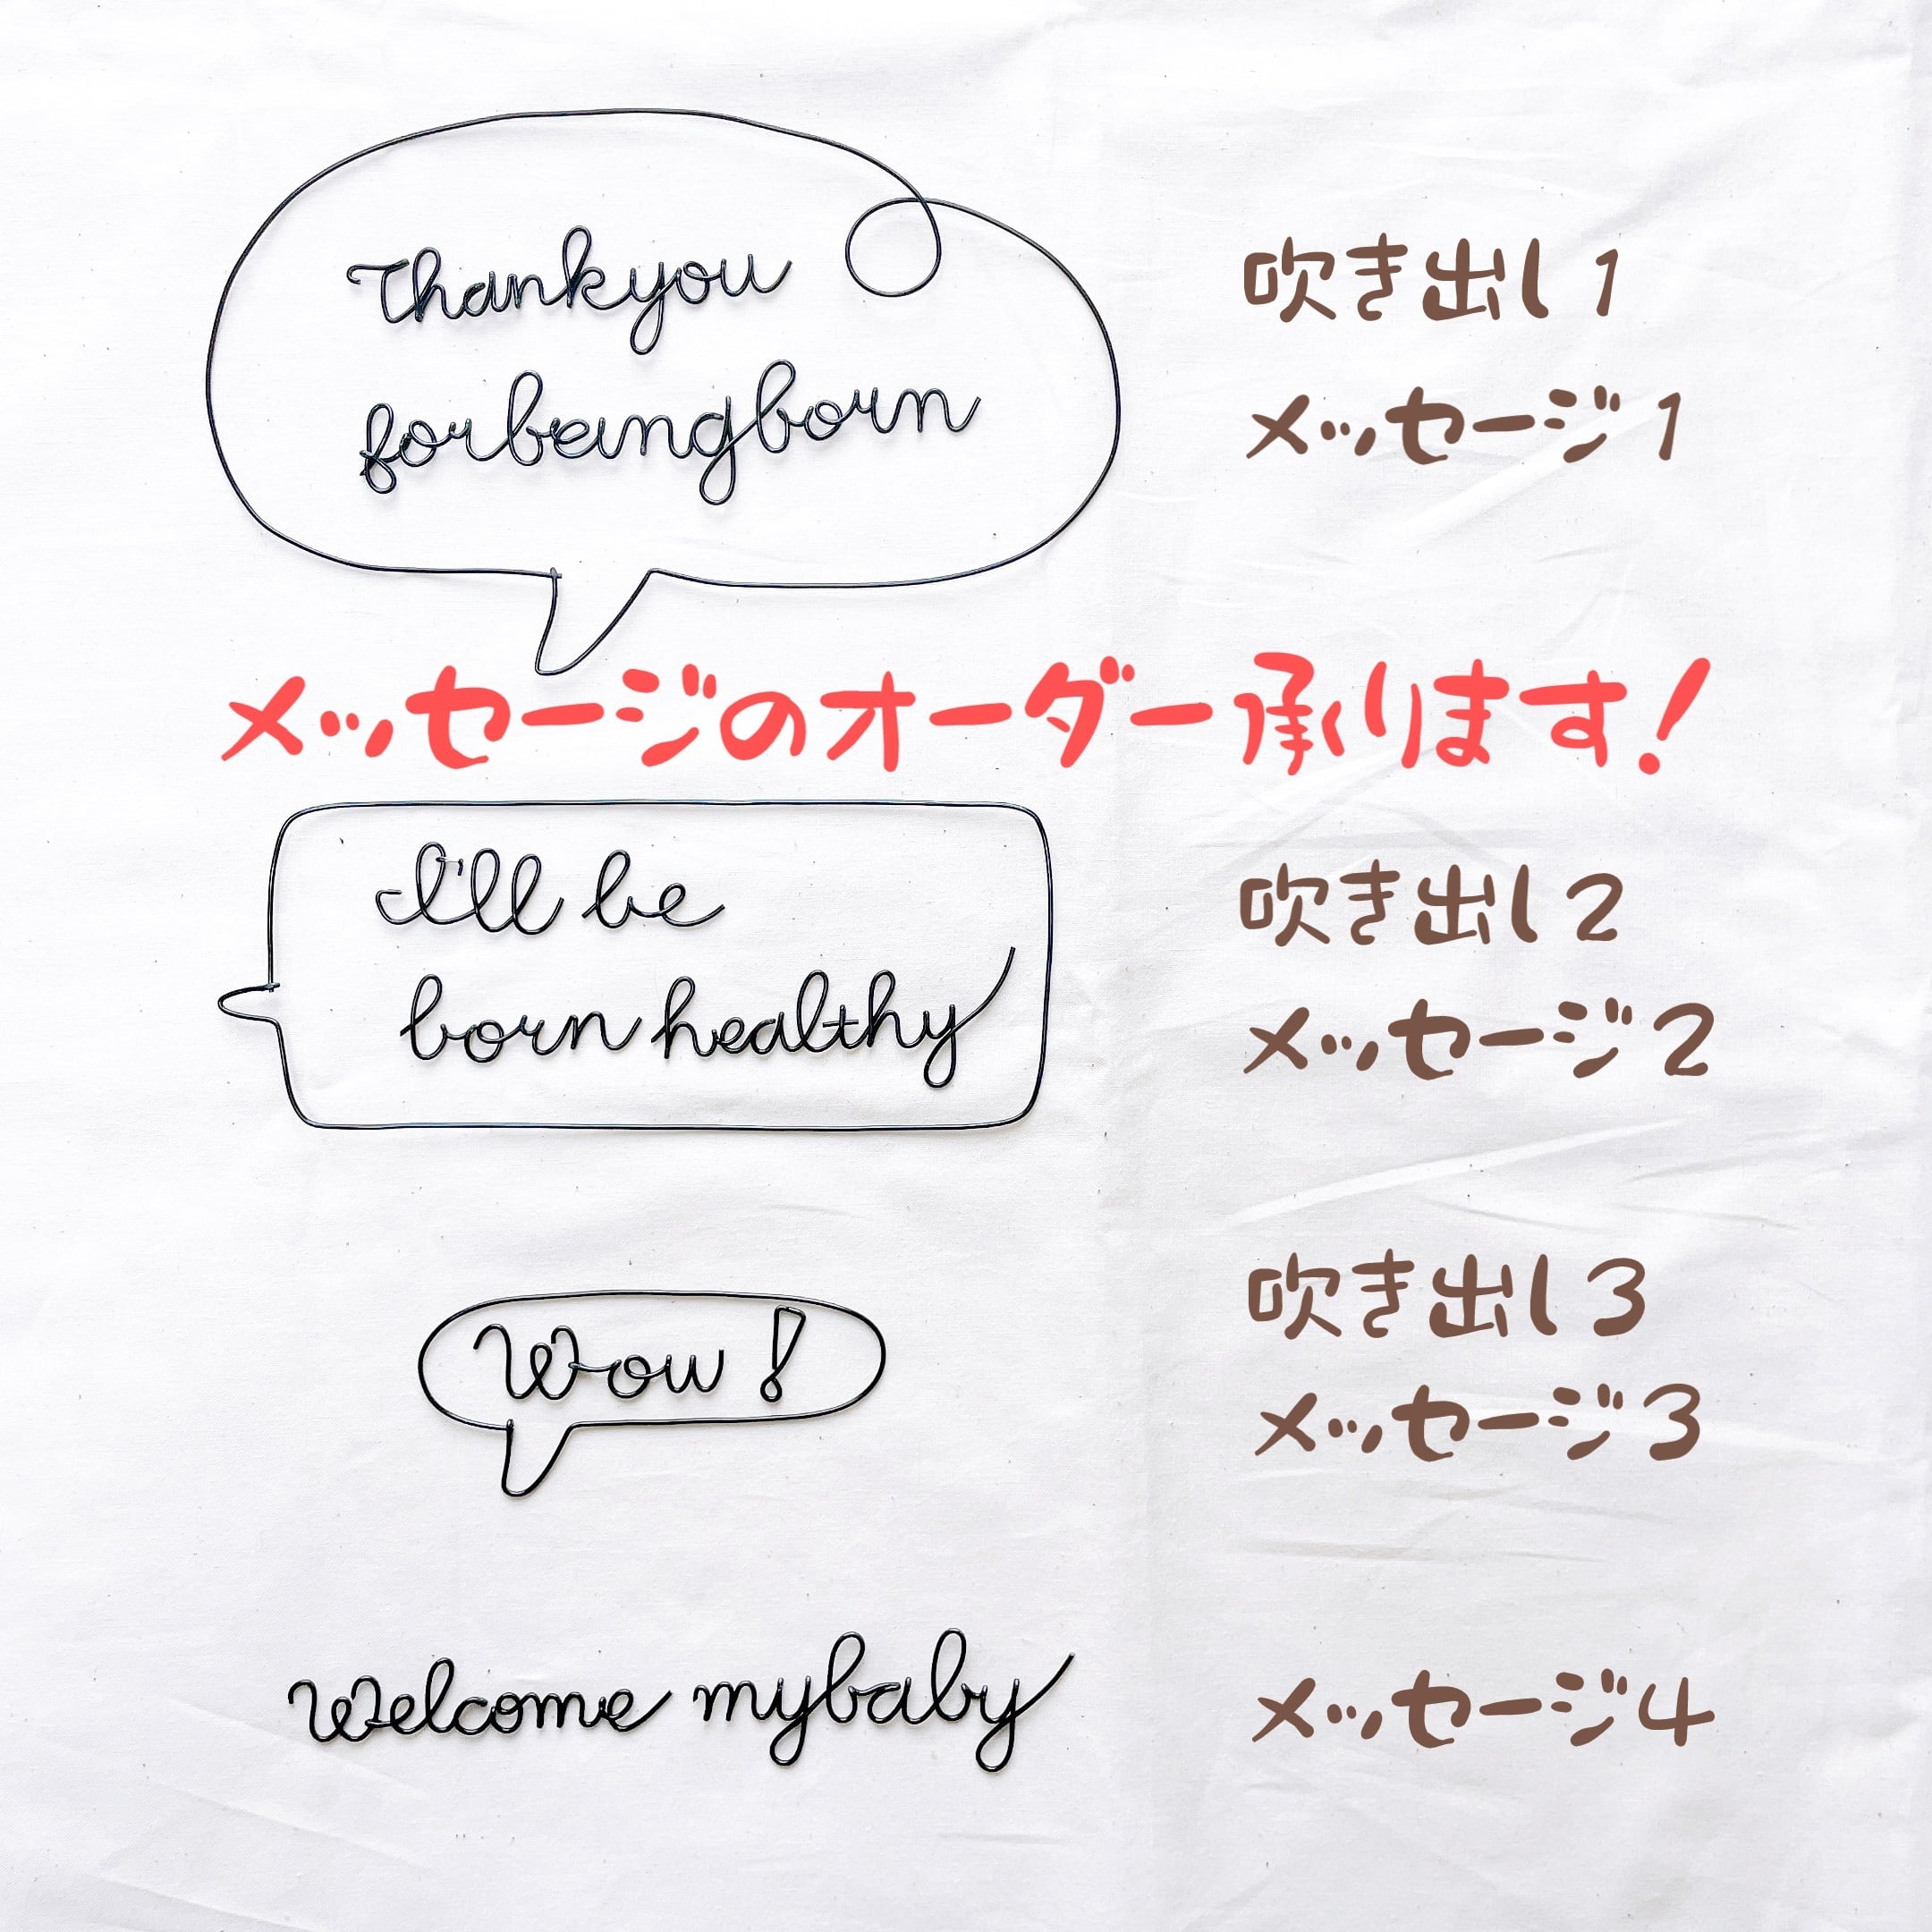 Thankyou
forbeingborn
吹き出し1
メッセージ1
メッセージのオーダー承ります！
I'll be
born healthy
吹き出し2
メッセージ2
Wow!
吹き出し3
メッセージ3
Welcome mybaby
メッセージ4